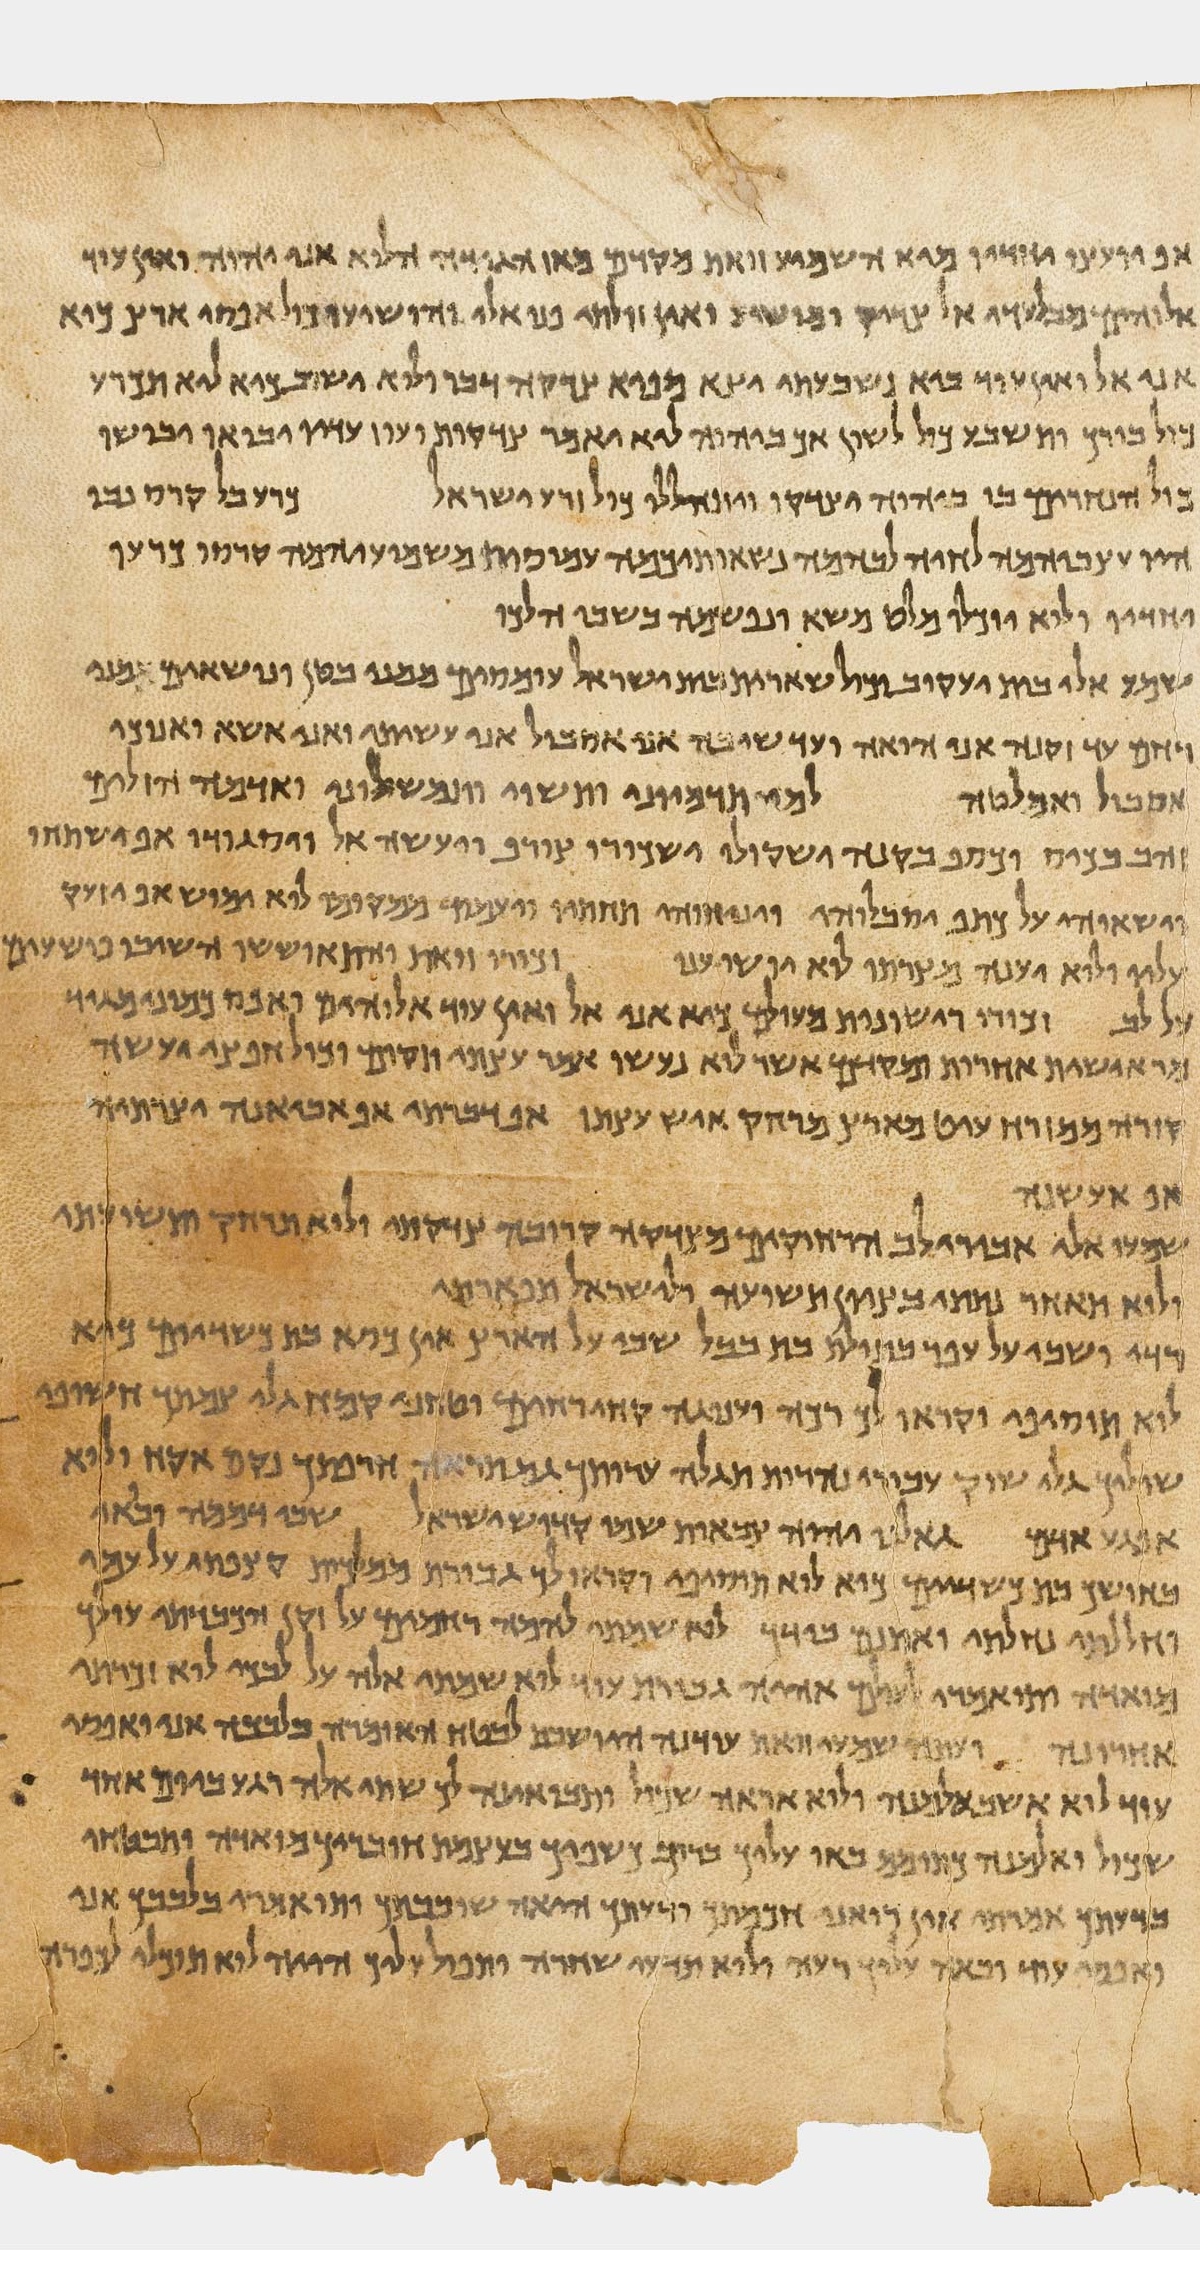 אף יועצו יחדיו מיא השמיע זואת מקדם מאז הגידה הלוא אני יהוה ואין עוד
אלוהים מבלעדי אל צדיק ומושיע ואין זולתי פנו אלי והושיעו כול אפסי ארץ כיא
אני אל ואין עוד ביא נשבעתי יצא מפיא צדקה דבר ולוא ישוב כיא ליא תכרע
כול בורך ותשבע כול לשון אך ביהוה ליא יאמר צדקות ועוז עדיו יבואו ויבושו
כול הנחרים בו ביהוה יצדקו ויתהללו כול זרע ישראל כרע בל קרס נבו
היו עצביהמה לחיה לבהמה נשאותיכמה עמוסות משמיעיהמה קרסו כרעו
יחדיו ולוא יוכלו מלט משא ונפשמה בשבי הלכו
שמעו אלי בית יעקוב וכול שארית בית ישראל עומסים ממני בטן ונשואים מני
רחם עד זקנה אני הואה ועד שיבה אני אסבול אני עשיתי ואני אשא ואנוכי
אסבול ואמלטה למי תדמיוני ותשוי ותמשלוני ואדמה הזולים
זהב מכיס וכסף בקנה ישקולו ישכורו צורף ויעשה אל ויסגודו אף ישתחוו
וישאוהו על כתף ויסבלוהו ויניחוהו תחתיו ויעמוד ממקומו לוא ימוש אף יזעק
עליו ולוא יענה מצרתו לוא יושיענו זכורו זואת והתאוששו השיבו פושעים
על לב זכורו ראישונות מעולם כיא אני אל ואין עוד אלוהים ואפס כמוני מגיד
מראישית אחרית ומקדם אשר לוא נעשו אומר עצתי תקום וכול חפצי יעשה
קורה ממזרח עיט מארץ מרחק איש עצתו אף דברתי אף אביאנה יצרתיה
אף אעשנה
שמעו אלי אבירי לב הרחוקים מצדקה קרובה צדקתי ולוא תרחק ותשועתי
ולוא תאחר נתתי בציון תשועה ולישראל תפארתי
רדי ושבי על עפר בתולת בת בבל שבי על הארץ אין כסא בת כשדיים כיא
לוא תוסיפי וקראו לך רכה וענוגה קחי רחים וטחני קמח גלי צמתך חשופי
שוליך גלי שוק עבורי נהרות תגלה ערותך גם תראה חרפתך נקם אקח ולוא
אפגע אדם גואלנו יהוה צבאות שמו קדוש ישראל שבי דממה ובואי
בחושך בת כשדיים כיא לוא תוסיפי וקראו לך גבורת ממלכות קצפתי על עמי
וחללתי נחלתי ואתנם בידך לוא שמתי להמה רחמים על זקן הכבדתי עולך
מואדה ותואמרי לעולם אהיה גבורת עוד לוא שמתי אלה על לבכי לוא זכרתי
אחרונה ועתה שמעי זואת עדינה היושבת לבטח האומרה בלבבה אני ואפסי
עוד לוא אשב אלמנה ולוא אראה שכול ותבואינה לך שתי אלה רגע ביום אחד
שכול ואלמנה כתומם באו עליך ברוב כשפיך בעצמת חובריך מואדה ותבטחי
בדעתך אמרתי אין רואני חכמתך ודעתך היאה שובבתך ותואמרי בלבבך אני
ואפסי עוד ובאה עליך רעה ולוא תדעי שחרה ותפול עליך הווה לוא תוכלי לכפרה